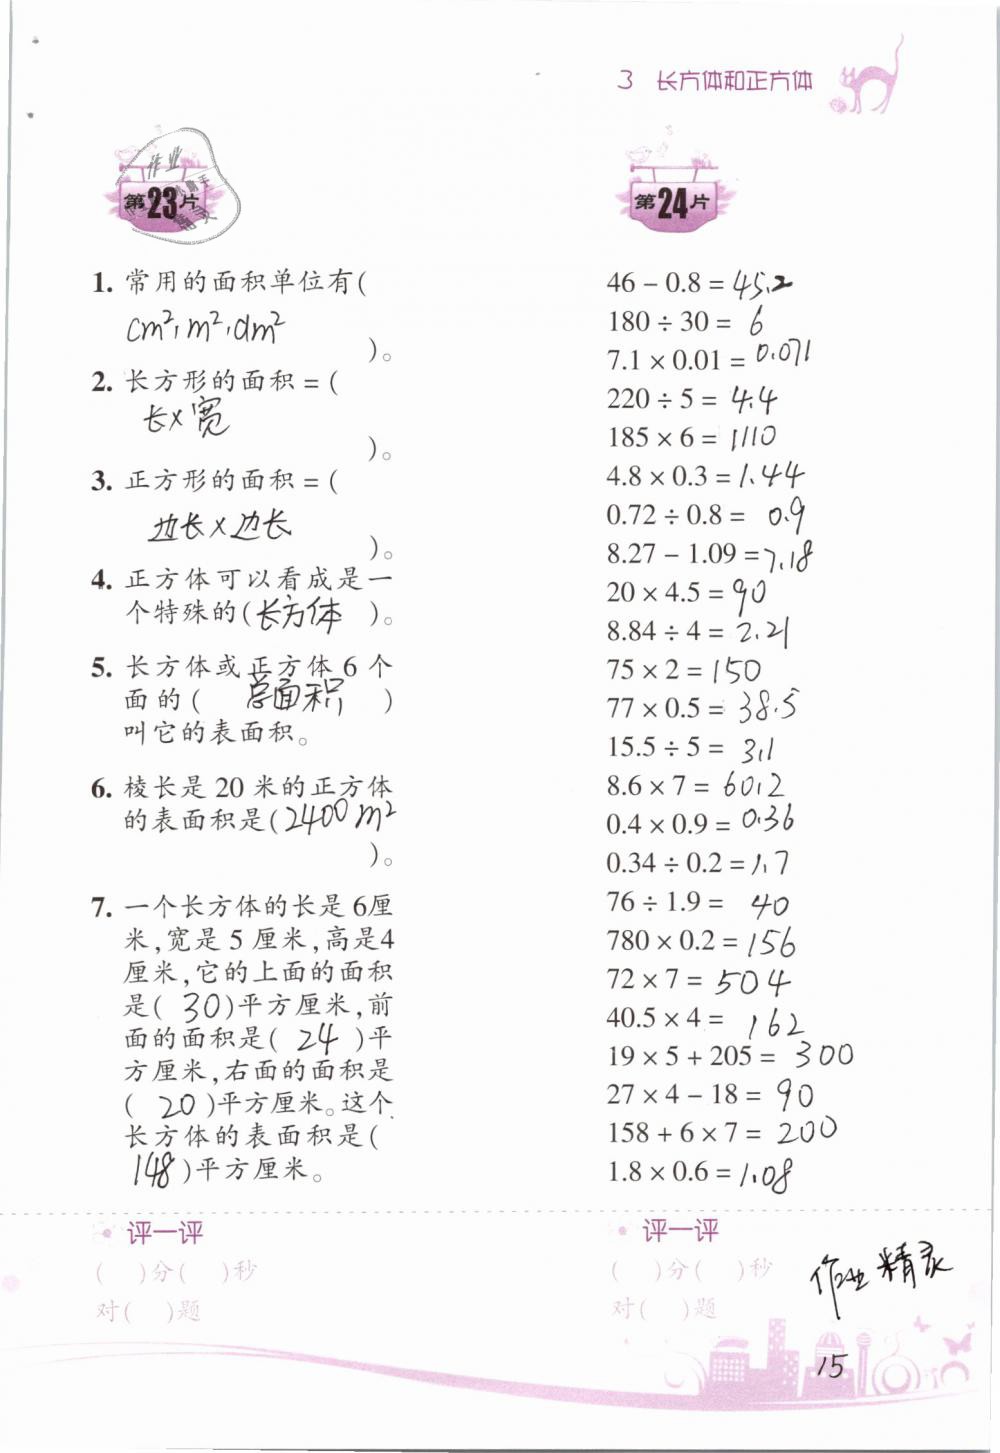 3 长方体和正方体
第23片
1. 常用的面积单位有(
cm²,m²,dm²
)。
2. 长方形的面积=(
长×宽
)。
3. 正方形的面积=(
边长×边长
)。
4. 正方体可以看成是一
个特殊的(长方体 )。
5. 长方体或正方体6个
面的( 总面积 )
叫它的表面积。
6. 棱长是20米的正方体
的表面积是(2400m²
)。
7. 一个长方体的长是6厘
米,宽是5厘米,高是4
厘米,它的上面的面积
是( 30)平方厘米,前
面的面积是( 24 )平
方厘米,右面的面积是
( 20 )平方厘米。这个
长方体的表面积是(
148)平方厘米。
评一评
( )分( )秒
对( )题
第24片
46－0.8＝45.2
180÷30＝6
7.1×0.01＝0.071
220÷5＝4.4
185×6＝1110
4.8×0.3＝1.44
0.72÷0.8＝0.9
8.27－1.09＝7.18
20×4.5＝90
8.84÷4＝2.21
75×2＝150
77×0.5＝38.5
15.5÷5＝3.1
8.6×7＝60.2
0.4×0.9＝0.36
0.34÷0.2＝1.7
76÷1.9＝40
780×0.2＝156
72×7＝504
40.5×4＝162
19×5＋205＝300
27×4－18＝90
158＋6×7＝200
1.8×0.6＝1.08
评一评
( )分( )秒
对( )题
作业精灵
15